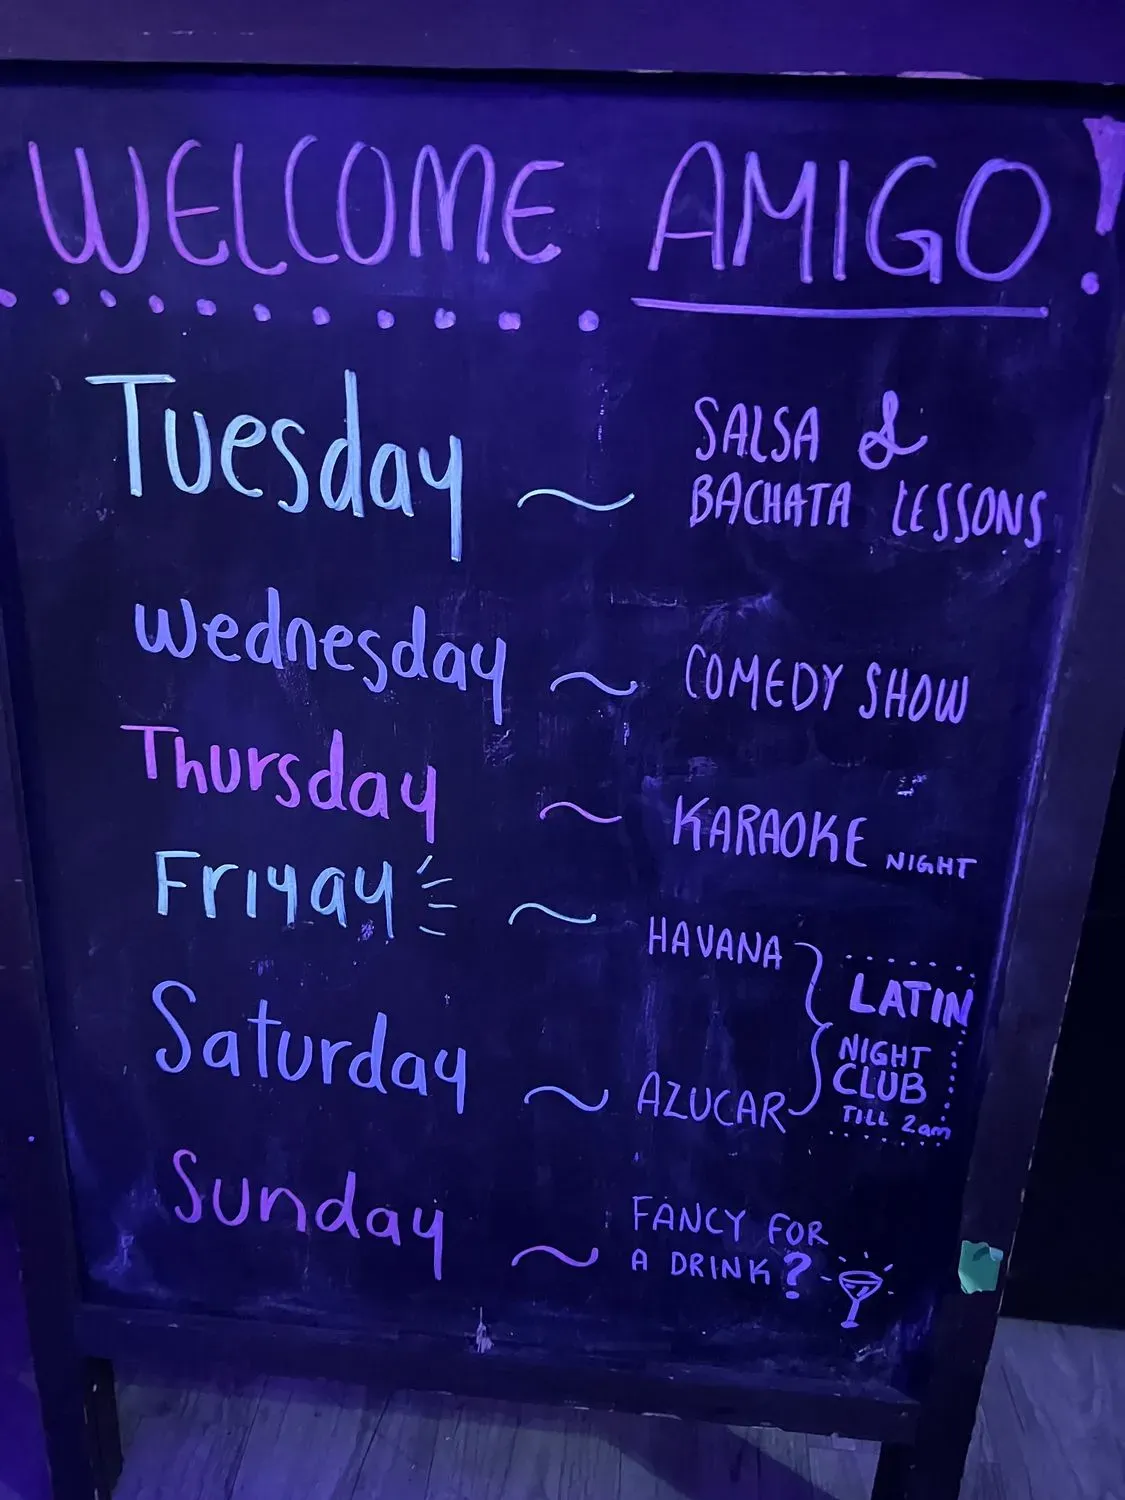 WELCOME AMIGO!
Tuesday ~ SALSA &
BACHATA LESSONS
Wednesday ~ COMEDY SHOW
Thursday ~ KARAOKE NIGHT
Friyay ~ HAVANA
LATIN
NIGHT
CLUB
TILL 2am
Saturday ~ AZUCAR
Sunday ~ FANCY FOR
A DRINK?